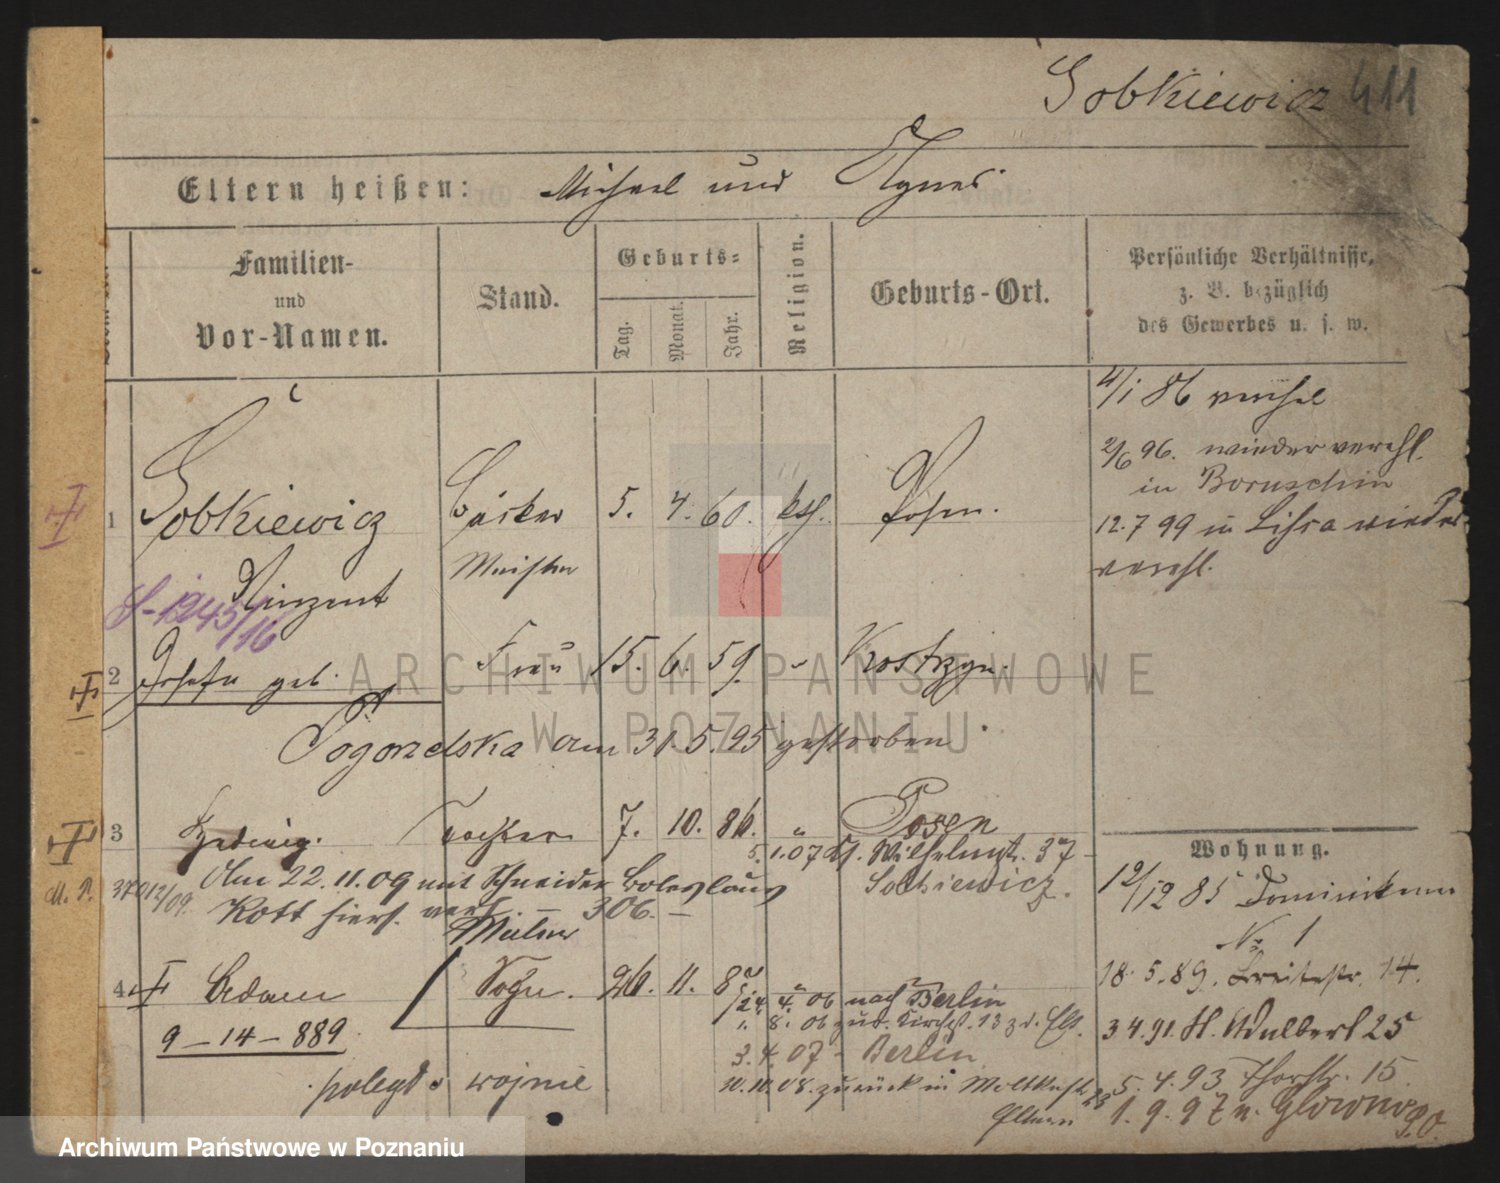 Sobkiewicz 411
Eltern heißen: Michael und Agnes.
Familien- und Vor-Namen.
Stand.
Geburts=
Tag.
Monat.
Jahr.
Religion.
Geburts-Ort.
Persönliche Verhältnisse,
z. B. bezüglich
des Gewerbes u. s. w.
1 Sobkiewicz Bäcker 5. 4. 60. kth. Posen.
Vinzent Meister
4/1 86 verehel
2/6 96. wieder verehl.
in Boruschin
12.7 99 in Lissa wieder
verehl.
2 Josefa geb. Frau 15. 6. 59. " Kostrzyn.
Pogorzelska am 31.5.95 gestorben
3 Hedwig. Tochter 7. 10. 86. " Posen
5.1.07 Wilhelmstr. 37
Am 22.11.09 mit Schneider Boleslaus Sobkiewicz.
Kott hiers. verh. – 306. –
Maler
4 Adam Sohn. 26. 11. 87 "
24. 4. 06 nach Berlin
9-14-889
1. 8. 06 zur. Kirchst. 13 z. d. Elt.
3. 4. 07 - Berlin
poległ w wojnie
10. 10. 08. zurück in Moltkestr. 28
Eltern
Wohnung.
12/12 85 Dominikaner
No 1
18. 5. 89. Breitestr. 14.
3 4. 91. St. Adalbert 25
5. 4. 93 Thorstr. 15
1. 9. 97 n. Glowno
ARCHIWUM PAŃSTWOWE
W POZNANIU
Archiwum Państwowe w Poznaniu